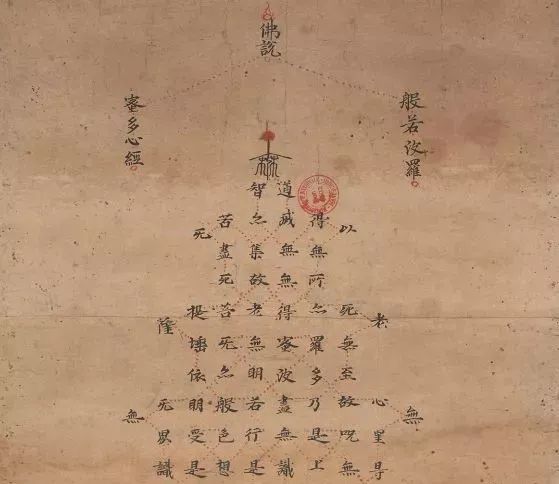 佛說
般若波羅
蜜多心經
無
老心
以死無至故呪無
得無所亦羅多乃是上
道滅無無得蜜波盡無識
智亦集故老無明若行是
苦盡死苦死亦般色想
死提埵依明受是
死界識
無